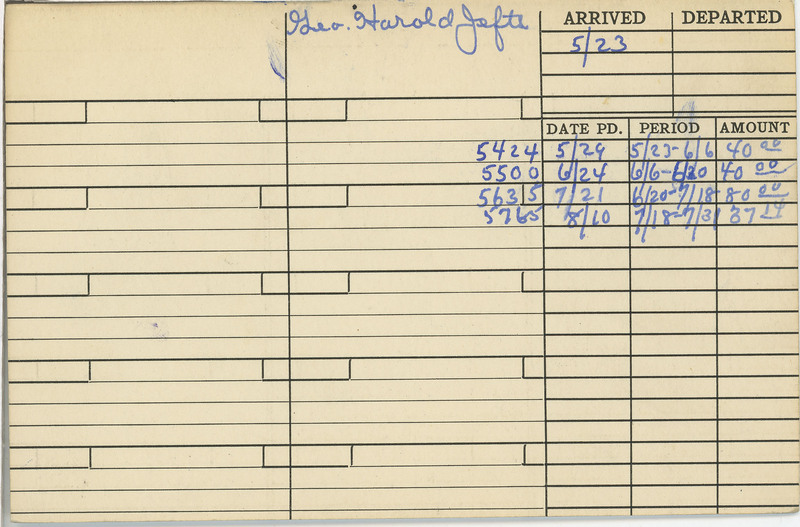 Geo. Harold Jefte
ARRIVED DEPARTED
5/23
DATE PD. PERIOD AMOUNT
5424 5/29 5/23-6/6 40 00
5500 6/24 6/6-6/20 40 00
5635 7/21 6/20-7/18 80 00
5765 8/10 7/18-7/31 37 14